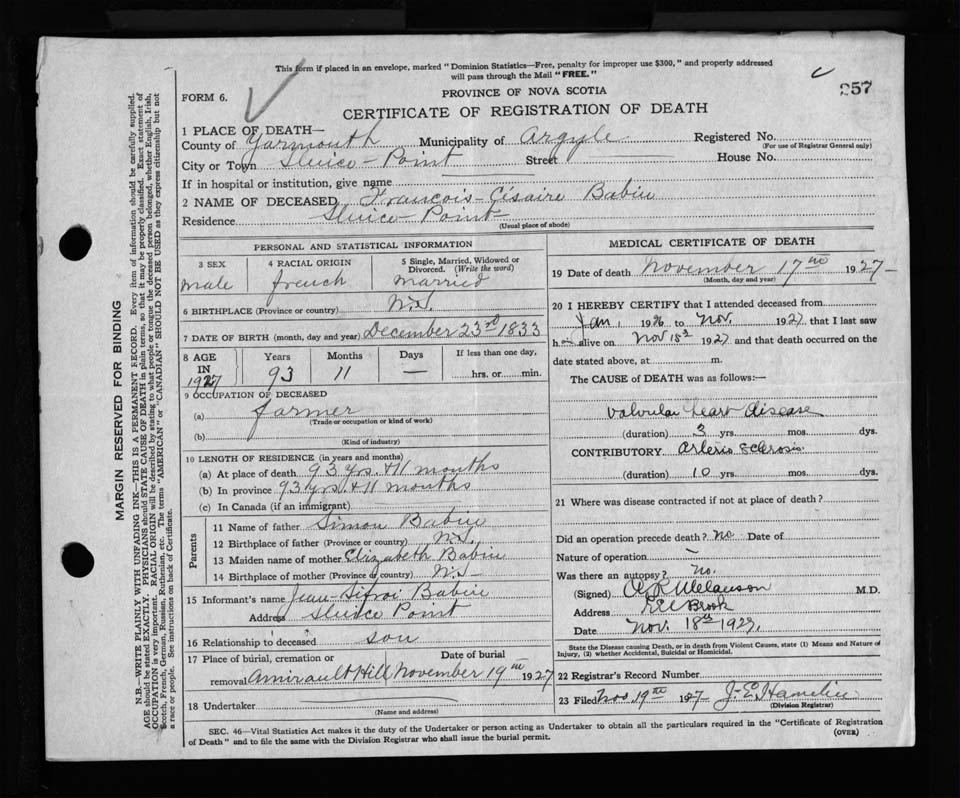 This form if placed in an envelope, marked "Dominion Statistics—Free, penalty for improper use $300," and properly addressed
will pass through the Mail "FREE."
PROVINCE OF NOVA SCOTIA
957
FORM 6.
CERTIFICATE OF REGISTRATION OF DEATH
1 PLACE OF DEATH—
County of Yarmouth Municipality of Argyle Registered No.
(For use of Registrar General only)
City or Town Sluice-Point Street House No.
If in hospital or institution, give name
2 NAME OF DECEASED Francois-Cisaire Babin
Residence Sluice-Point
(Usual place of abode)
PERSONAL AND STATISTICAL INFORMATION
3 SEX 4 RACIAL ORIGIN 5 Single, Married, Widowed or
Divorced. (Write the word)
male french married
6 BIRTHPLACE (Province or country) N.S.
7 DATE OF BIRTH (month, day and year) December 23rd 1833
8 AGE Years Months Days If less than one day,
IN
1927 93 11 — hrs. or min.
9 OCCUPATION OF DECEASED
(a) farmer
(Trade or occupation or kind of work)
(b)
(Kind of industry)
10 LENGTH OF RESIDENCE (in years and months)
(a) At place of death 93 yrs. + 11 months
(b) In province 93 yrs. + 11 months
(c) In Canada (if an immigrant)
Parents
11 Name of father Simon Babin
12 Birthplace of father (Province or country) N.S.
13 Maiden name of mother Elizabeth Babin
14 Birthplace of mother (Province or country) N.S—
15 Informant's name Jean-Sifroi Babin
Address Sluice Point
16 Relationship to deceased son
17 Place of burial, cremation or Date of burial
removal Amirault Hill November 19th 1927
18 Undertaker
(Name and address)
MEDICAL CERTIFICATE OF DEATH
19 Date of death November 17th 1927—
(Month, day and year)
20 I HEREBY CERTIFY that I attended deceased from
Jan. 1926 to Nov. 1927 that I last saw
him alive on Nov 15th 1927 and that death occurred on the
date stated above, at m.
The CAUSE of DEATH was as follows:—
Valvular heart disease
(duration) 3 yrs. mos. dys.
CONTRIBUTORY Arterio Sclerosis
(duration) 10 yrs. mos. dys.
21 Where was disease contracted if not at place of death?
Did an operation precede death? no Date of
Nature of operation —
Was there an autopsy? no.
(Signed) Melanson M.D.
Address Eel Brook
Date Nov. 18th 1927.
State the Disease causing Death, or in death from Violent Causes, state (1) Means and Nature of
Injury, (2) whether Accidental, Suicidal or Homicidal.
22 Registrar's Record Number
23 Filed Nov. 19th 1927 J. E. Hamelin
(Division Registrar)
SEC. 46—Vital Statistics Act makes it the duty of the Undertaker or person acting as Undertaker to obtain all the particulars required in the "Certificate of Registration
of Death" and to file the same with the Division Registrar who shall issue the burial permit.
(OVER)
MARGIN RESERVED FOR BINDING
N.B.—WRITE PLAINLY WITH UNFADING INK—THIS IS A PERMANENT RECORD. Every item of information should be carefully supplied.
AGE should be stated EXACTLY. PHYSICIANS should STATE CAUSE OF DEATH in plain terms, so that it may be properly classified. Exact statement of
OCCUPATION is very important. RACIAL ORIGIN will be described by stating to what people or tongue the deceased person belonged, whether English, Irish,
Scotch, French, German, Russian, Ruthenian, etc. The terms "AMERICAN" or "CANADIAN" SHOULD NOT BE USED as they express citizenship but not
a race or people. See instructions on back of Certificate.